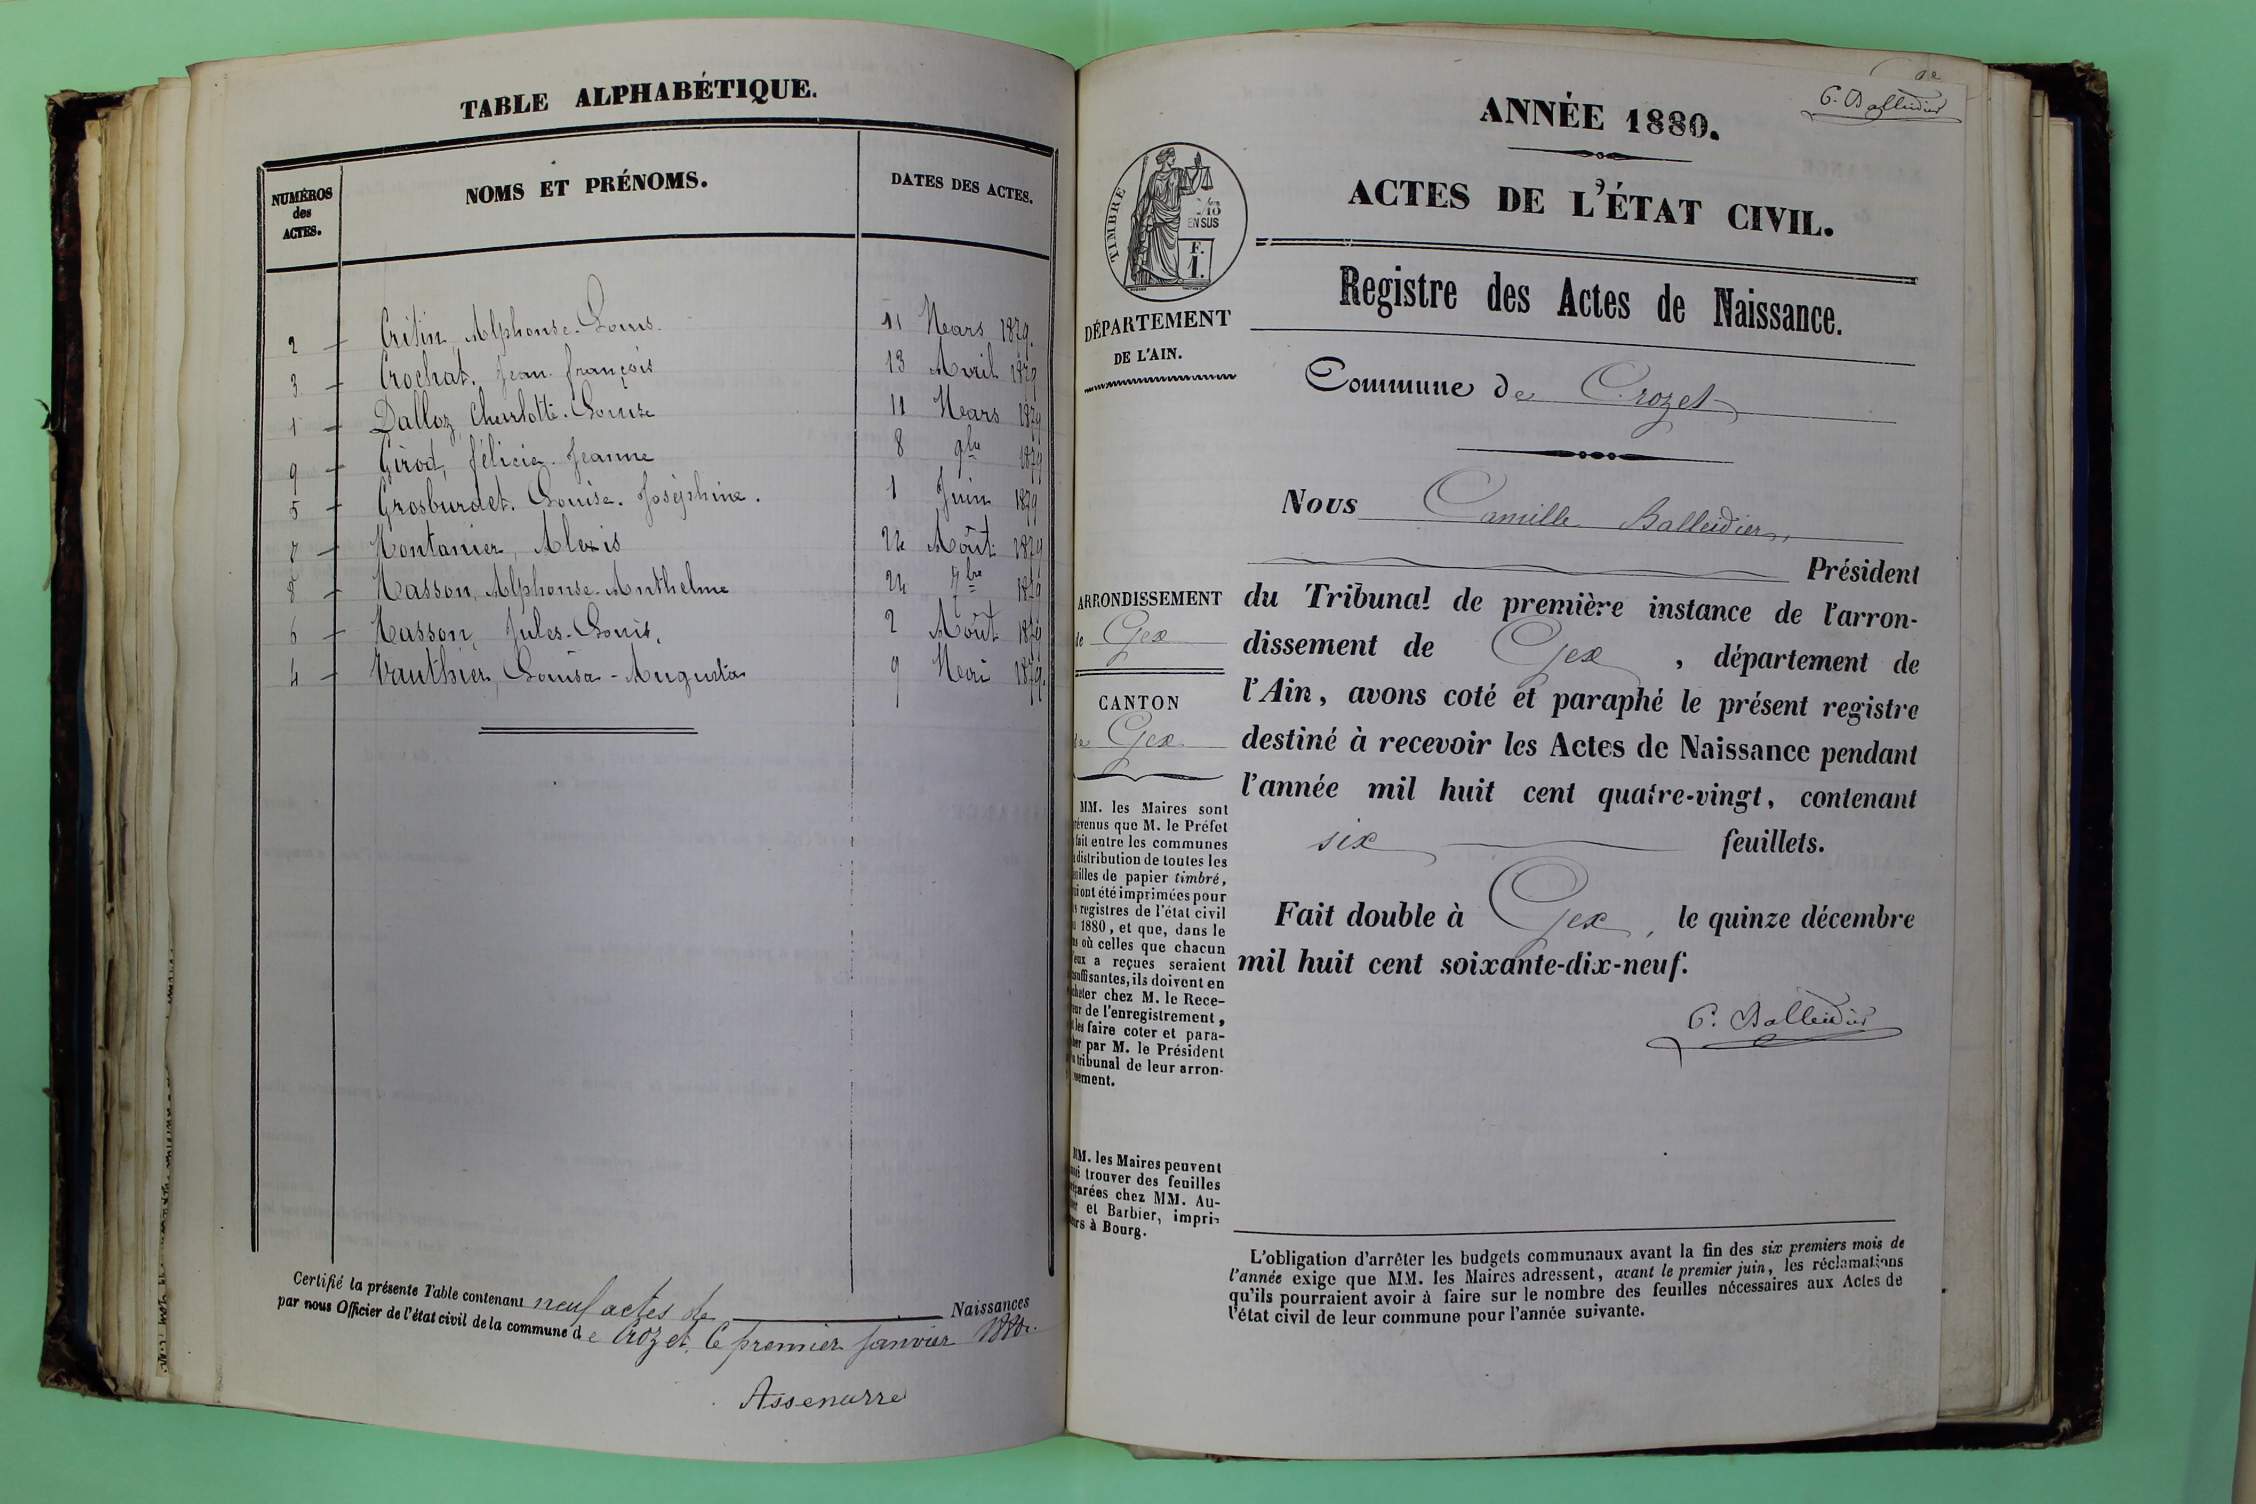 TABLE ALPHABÉTIQUE.
NUMÉROS
des
ACTES.
NOMS ET PRÉNOMS.
DATES DES ACTES.
2 Critin, Alphonse-Louis. 11 Mars 1879.
3 Crochat, Jean-françois 13 Avril 1879
1 Dalloz, Charlotte-Louise 11 Mars 1879
9 Girod, félicie-Jeanne 8 9bre 1879
5 Grosburdet. Louise. Joséphine. 1 Juin 1879
7 Montanier, Alexis 24 Août 1879
8 Masson, Alphonse-Anthelme 24 7bre 1879
6 Masson, Jules-Louis, 2 Août 1879
4 Vauthier, Louisa-Augusta 9 Mai 1879.
Certifié la présente Table contenant neuf actes de Naissances
par nous Officier de l'état civil de la commune de Crozet, le premier Janvier 1880.
C. Balleidier
ANNÉE 1880.
ACTES DE L'ÉTAT CIVIL.
Registre des Actes de Naissance.
TIMBRE
EN SUS
F.
1.
DÉPARTEMENT
DE L'AIN.
Commune de Crozet
Nous Camille Balleidier,
Président
du Tribunal de première instance de l'arron-
dissement de Gex, département de
l'Ain, avons coté et paraphé le présent registre
destiné à recevoir les Actes de Naissance pendant
l'année mil huit cent quatre-vingt, contenant
six feuillets.
Fait double à Gex, le quinze décembre
mil huit cent soixante-dix-neuf.
C. Balleidier
ARRONDISSEMENT
de Gex
CANTON
de Gex
MM. les Maires sont
évenus que M. le Préfet
fait entre les communes
distribution de toutes les
illes de papier timbré,
i ont été imprimées pour
s registres de l'état civil
1880, et que, dans le
s où celles que chacun
eux a reçues seraient
suffisantes, ils doivent en
cheter chez M. le Rece-
eur de l'enregistrement,
les faire coter et para-
her par M. le Président
tribunal de leur arron-
sement.
MM. les Maires peuvent
si trouver des feuilles
parées chez MM. Au-
er et Barbier, impri-
eurs à Bourg.
L'obligation d'arrêter les budgets communaux avant la fin des six premiers mois de
l'année exige que MM. les Maires adressent, avant le premier juin, les réclamations
qu'ils pourraient avoir à faire sur le nombre des feuilles nécessaires aux Actes de
l'état civil de leur commune pour l'année suivante.